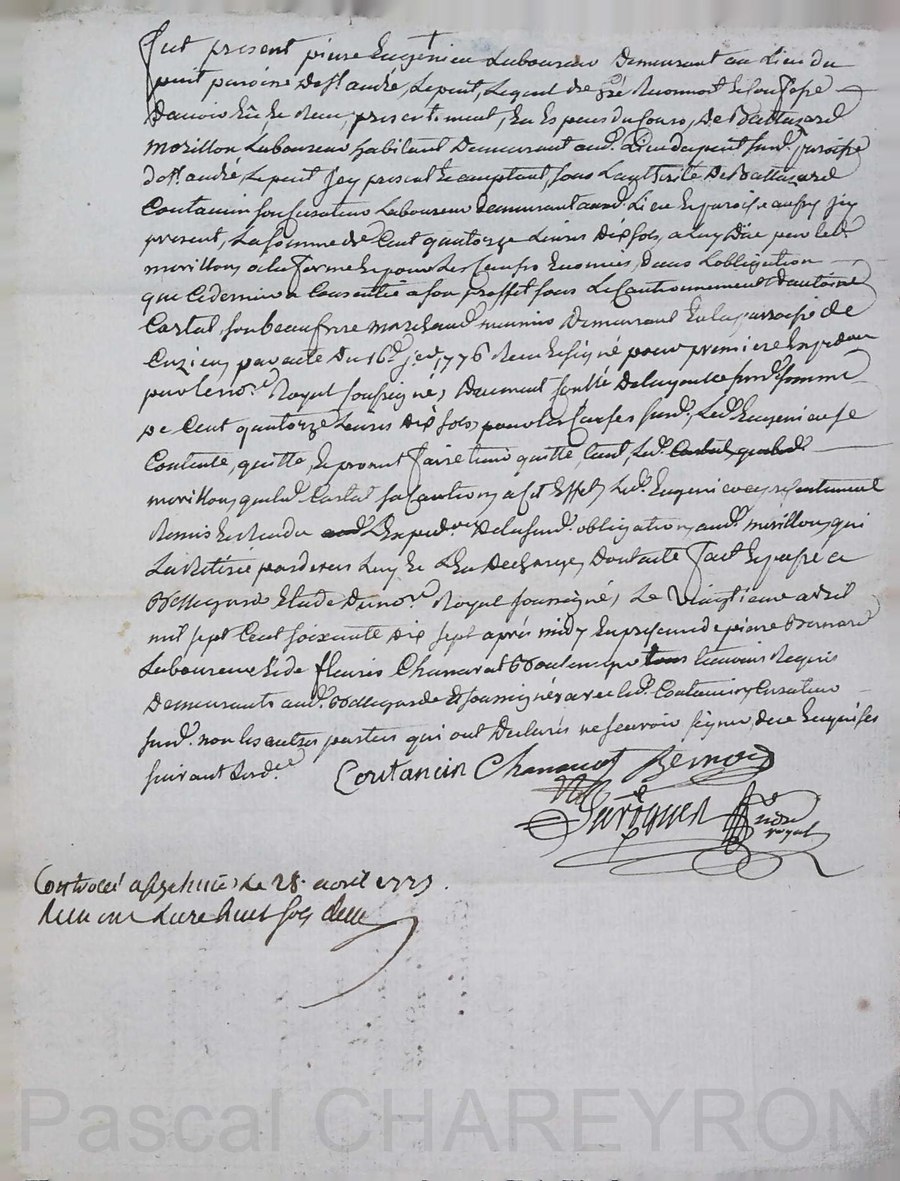 fut present pierre Eugenieu Laboureur Demeurant au Lieu du
puit paroisse De st andré, Le puit, Lequel de gré Reconnoit Et Confesse
D'avoir Eu Et Receu, presentement, En Especes du Cours, De Baltazard
morillon Laboureur habitant Demeurant aud. Lieu du puit susd. paroisse
de st. andré Le puit Icy present Et acceptant, sous L'autorité De Baltazard
Coutancin son Curateur Laboureur demeurant aud. Lieu Et paroisse aussy Icy
present, La somme de Cent quatorze Livres Dix sols, a Luy Due par led.
morillon a la forme Et pour Les Causes Enoncées, dans L'obligation
que Ce dernier a Consentie a son proffit sous Le Cautionnement d'antoine
Cartal son beaufrere marchand meunier Demeurant En la parroisse de
Cuzieu par acte Du 16e. 1776 Receu Et signé pour premiere Expedition
par Le no.re Royal soussigné, De laquelle susd. somme
De Cent quatorze Livres Dix sols, pour les Causes susd. Led. Eugenieu se
Contente, quitte, Et promet faire tenir quitte, tant, Led. Cartal que led.
morillon que led. Cartal sa Caution, a Cet Effet, Led. Eugenieu a presentement
Remis Et Rendu aud. L'Exped.on De la susd. obligation, aud. morillon, qui
L'a Retirée pardevers Luy Et L'En Decharge, Dont acte fait Et passé a
Bellegarde Etude Du no.re Royal soussigné, Le vingtieme avril
mil sept Cent soixante Dix sept après midy En presence de pierre Bernard
Laboureur Et de fleuris Chanavat Boulanger temoins Requis
Demeurants aud. Bellegarde Et soussignés avec led. Coutancin Curateur
susd. non les autres parties qui ont Declarés ne scavoir signer, de ce Enquises
suivant L'ord.ce
Coutancin Chanavat Bernard
notre
royal
Controllé a Le 28. avril 1777.
Receu une Livre huit sols